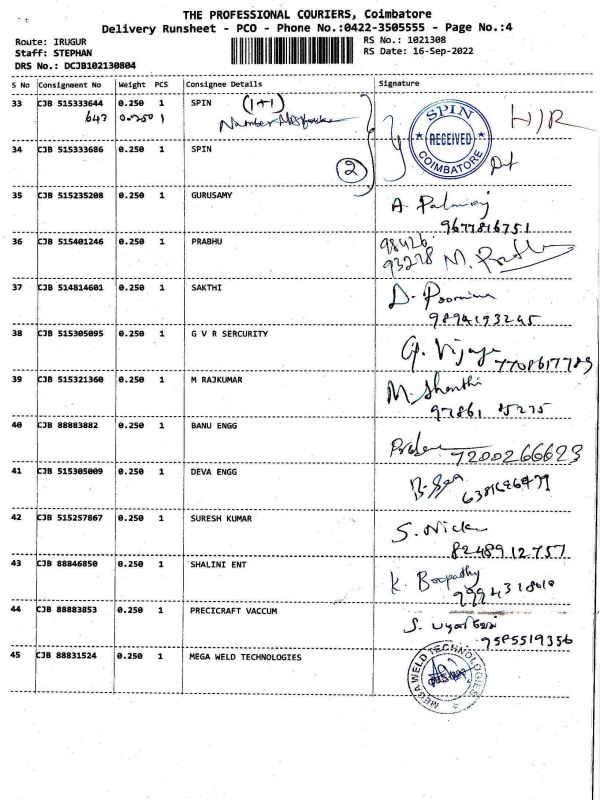 THE PROFESSIONAL COURIERS, Coimbatore
Delivery Runsheet - PCO - Phone No.:0422-3505555 - Page No.:4
Route: IRUGUR
RS No.: 1021308
Staff: STEPHAN
RS Date: 16-Sep-2022
DRS No.: DCJB102130804
S No Consignment No Weight PCS Consignee Details Signature
33 CJB 515333644 0.250 1 SPIN (1+1)
647 0.250 1 Number
SPIN RECEIVED COIMBATORE
34 CJB 515333686 0.250 1 SPIN
2
35 CJB 515235208 0.250 1 GURUSAMY A. Palaniraj
9677816751
36 CJB 515401246 0.250 1 PRABHU 98426
93278 M.
37 CJB 514814601 0.250 1 SAKTHI D. Poornima
9894193245
38 CJB 515305095 0.250 1 G V R SERCURITY G. Vijaya
7708617789
39 CJB 515321360 0.250 1 M RAJKUMAR M. Shanthi
97861 85275
40 CJB 88883882 0.250 1 BANU ENGG
7200266623
41 CJB 515305009 0.250 1 DEVA ENGG
42 CJB 515257867 0.250 1 SURESH KUMAR S.
8248912757
43 CJB 88846850 0.250 1 SHALINI ENT K. Boopathy
44 CJB 88883853 0.250 1 PRECICRAFT VACCUM S.
9585519356
45 CJB 88831524 0.250 1 MEGA WELD TECHNOLOGIES
MEGA WELD TECHNOLOGIES